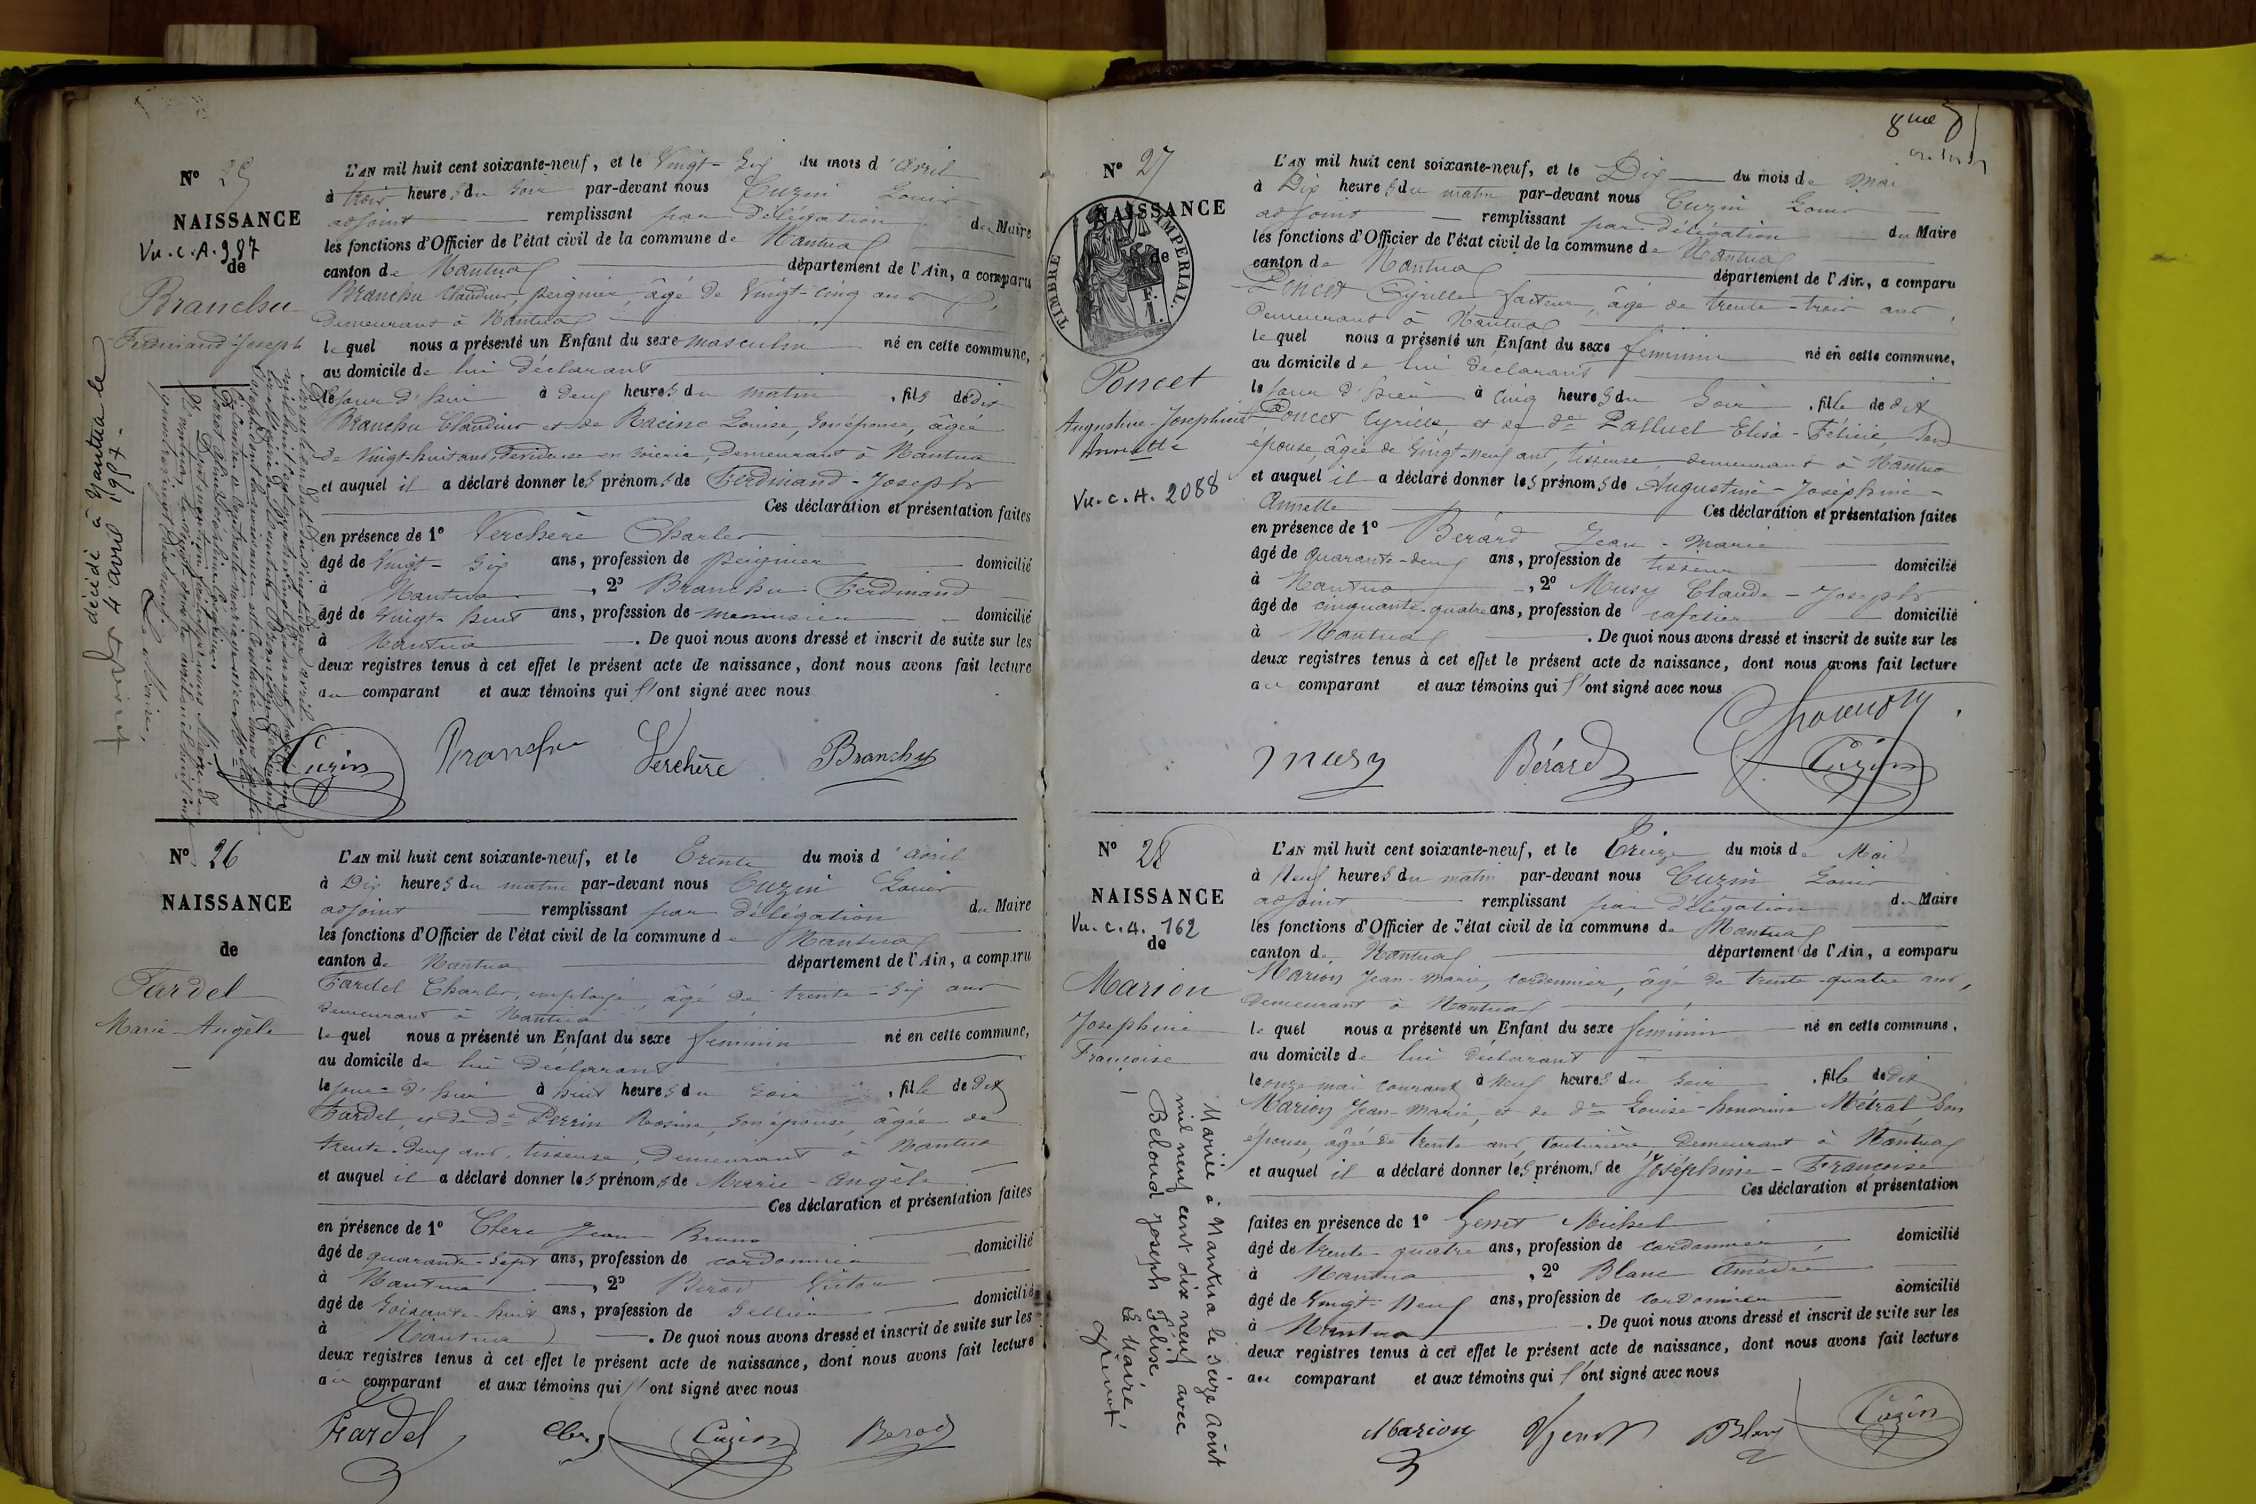 N° 25
NAISSANCE
Vu. C. A. 987
de
Branchu
Ferdinand-Joseph
décédé à Nantua le
4 avril 1957.
Le Maire,
L'AN mil huit cent soixante-neuf, et le Vingt-Six du mois d'avril
à trois heures du soir par-devant nous Cuzin Louis
adjoint remplissant par délégation du Maire
les fonctions d'Officier de l'état civil de la commune de Nantua
canton de Nantua département de l'Ain, a comparu
Branchu Claudius, peignier, âgé de Vingt-cinq ans
demeurant à Nantua
lequel nous a présenté un Enfant du sexe masculin né en cette commune,
au domicile de lui déclarant
le jour d'hui à deux heures du matin, fils de dit
Branchu Claudius et de Racine Louise, son épouse, âgée
de Vingt-huit ans, dévideuse en soierie, demeurant à Nantua
et auquel il a déclaré donner les prénoms de Ferdinand-Joseph
Ces déclaration et présentation faites
en présence de 1° Verchère Charles
âgé de Vingt-Six ans, profession de peignier domicilié
à Nantua, 2° Branchu Ferdinand
âgé de Vingt-huit ans, profession de menuisier domicilié
à Nantua. De quoi nous avons dressé et inscrit de suite sur les
deux registres tenus à cet effet le présent acte de naissance, dont nous avons fait lecture
au comparant et aux témoins qui l'ont signé avec nous
Cuzin Branchu Verchère Branchu
N° 26
NAISSANCE
de
Fardel
Marie-Angèle
L'AN mil huit cent soixante-neuf, et le Trente du mois d'avril
à Dix heures du matin par-devant nous Cuzin Louis
adjoint remplissant par délégation du Maire
les fonctions d'Officier de l'état civil de la commune de Nantua
canton de Nantua département de l'Ain, a comparu
Fardel Charles, employé, âgé de trente-six ans
demeurant à Nantua
lequel nous a présenté un Enfant du sexe feminin né en cette commune,
au domicile de lui déclarant
le jour d'hier à huit heures du soir, fille de dit
Fardel, et de de Perrin Rosine, son épouse, âgée de
trente-deux ans, tisseuse, demeurant à Nantua
et auquel il a déclaré donner les prénoms de Marie-Angèle
Ces déclaration et présentation faites
en présence de 1° Clerc Jean Bruno
âgé de quarante-sept ans, profession de cordonnier domicilié
à Nantua, 2° Berod
âgé de Soixante-huit ans, profession de Sellier domicilié
à Nantua. De quoi nous avons dressé et inscrit de suite sur les
deux registres tenus à cet effet le présent acte de naissance, dont nous avons fait lecture
au comparant et aux témoins qui l'ont signé avec nous
Fardel Clerc Cuzin Berod
8me
N° 27
NAISSANCE
TIMBRE IMPERIAL.
F.
1.
de
Poncet
Augustine-Josephine
Annette
Vu. C. A. 2088
L'AN mil huit cent soixante-neuf, et le Dix du mois de Mai
à Dix heures du matin par-devant nous Cuzin Louis
adjoint remplissant par délégation du Maire
les fonctions d'Officier de l'état civil de la commune de Nantua
canton de Nantua département de l'Ain, a comparu
Poncet Cyrille, facteur, âgé de trente-trois ans,
demeurant à Nantua
lequel nous a présenté un Enfant du sexe feminin né en cette commune,
au domicile de lui déclarant
le jour d'hier à cinq heures du soir, fille de dit
Poncet Cyrille, et de de Palluel Elisa-Félicie, son
épouse, âgée de Vingt-neuf ans, tisseuse, demeurant à Nantua
et auquel il a déclaré donner les prénoms de Augustine-Joséphine-
Annette Ces déclaration et présentation faites
en présence de 1° Bérard Jean-Marie
âgé de quarante-deux ans, profession de tisseur domicilié
à Nantua, 2° Musy Claude-Joseph
âgé de cinquante-quatre ans, profession de cafetier domicilié
à Nantua. De quoi nous avons dressé et inscrit de suite sur les
deux registres tenus à cet effet le présent acte de naissance, dont nous avons fait lecture
au comparant et aux témoins qui l'ont signé avec nous
Musy Bérard Cuzin
N° 28
NAISSANCE
Vu. C. A. 162
de
Marion
Josephine
Françoise
Mariée à Nantua le seize Août
mil neuf cent dix neuf avec
Beloud Joseph Félise
Le Maire,
L'AN mil huit cent soixante-neuf, et le Treize du mois de Mai
à Neuf heures du matin par-devant nous Cuzin Louis
adjoint remplissant par délégation du Maire
les fonctions d'Officier de l'état civil de la commune de Nantua
canton de Nantua département de l'Ain, a comparu
Marion Jean-Marie, cordonnier, âgé de trente-quatre ans,
demeurant à Nantua
lequel nous a présenté un Enfant du sexe feminin né en cette commune,
au domicile de lui déclarant
le onze mai courant à Neuf heures du soir, fille de dit
Marion Jean-Marie, et de de Louise-honorine Métral son
épouse, âgée de trente ans, couturière, demeurant à Nantua
et auquel il a déclaré donner les prénoms de Joséphine-Françoise
Ces déclaration et présentation
faites en présence de 1° Michel
âgé de trente-quatre ans, profession de cordonnier, domicilié
à Nantua, 2° Blanc Amédée
âgé de Vingt-Neuf ans, profession de cordonnier domicilié
à Nantua. De quoi nous avons dressé et inscrit de suite sur les
deux registres tenus à cet effet le présent acte de naissance, dont nous avons fait lecture
au comparant et aux témoins qui l'ont signé avec nous
Marion Blanc Cuzin